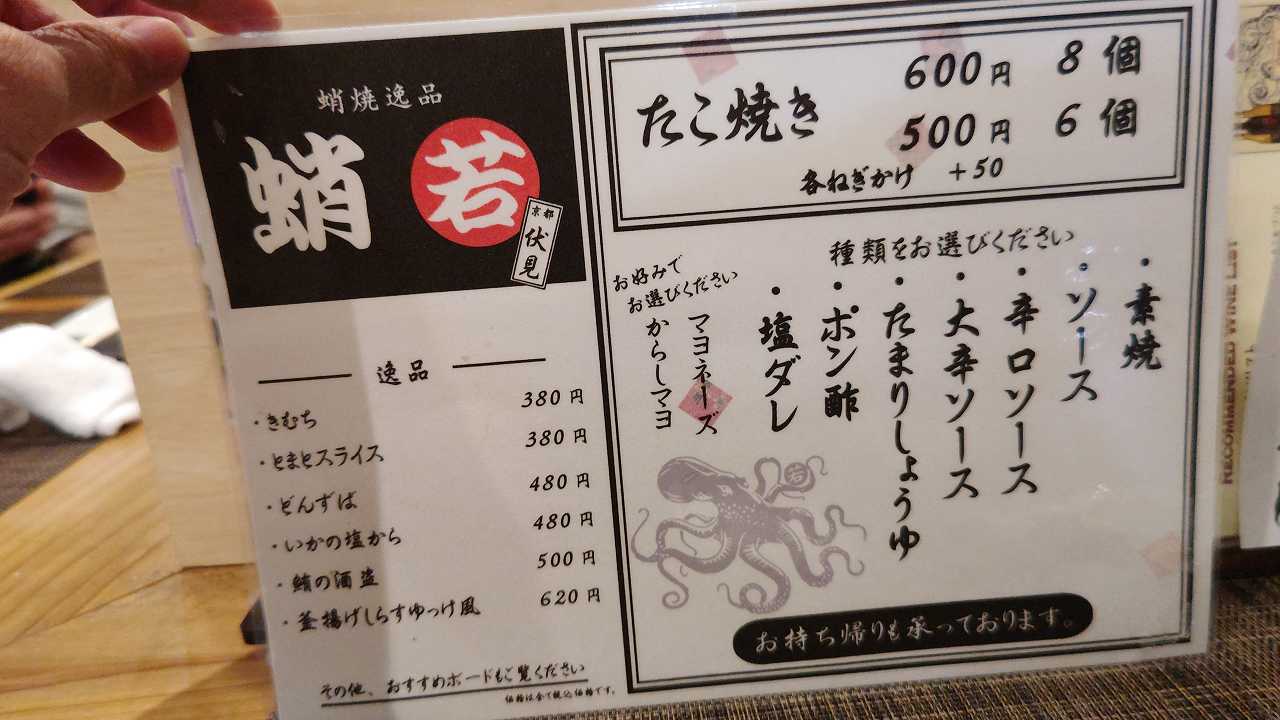 蛸焼逸品
蛸 若
京都
伏見
逸品
・きむち 380円
・とまとスライス 380円
・どんずば 480円
・いかの塩から 480円
・鮪の酒盗 500円
・釜揚げしらすゆっけ風 620円
その他、おすすめボードもご覧ください
価格は全て税込価格です。
たこ焼き
600円 8個
500円 6個
各ねぎかけ +50
種類をお選びください
・素焼
・ソース
・辛口ソース
・大辛ソース
・たまりしょうゆ
・ポン酢
・塩ダレ
お好みで
お選びください
マヨネーズ
からしマヨ
若
お持ち帰りも承っております。
RECOMMENDED WINE LIST